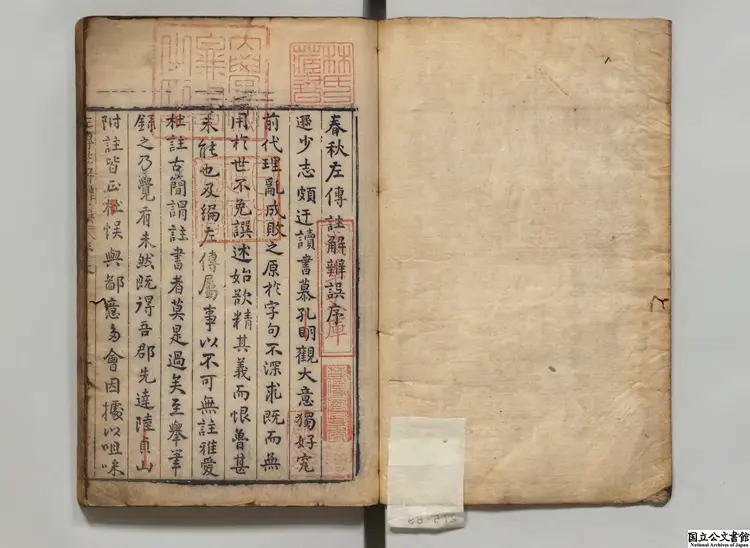 春秋左傳註解辨誤序
遜少志頗迂讀書慕孔明觀大意獨好究
前代理亂成敗之原於字句不深求既而無
用於世不免譔述始欲精其義而恨魯甚
未能也及編左傳屬事以不可無註雅愛
杜註古簡謂註書者莫是過矣至舉筆
錄之乃覺有未然既得吾郡先達陸貞山
附註皆正杜悞與鄙意多會因據以咀味
林氏
藏書
国立公文書館
National Archives of Japan